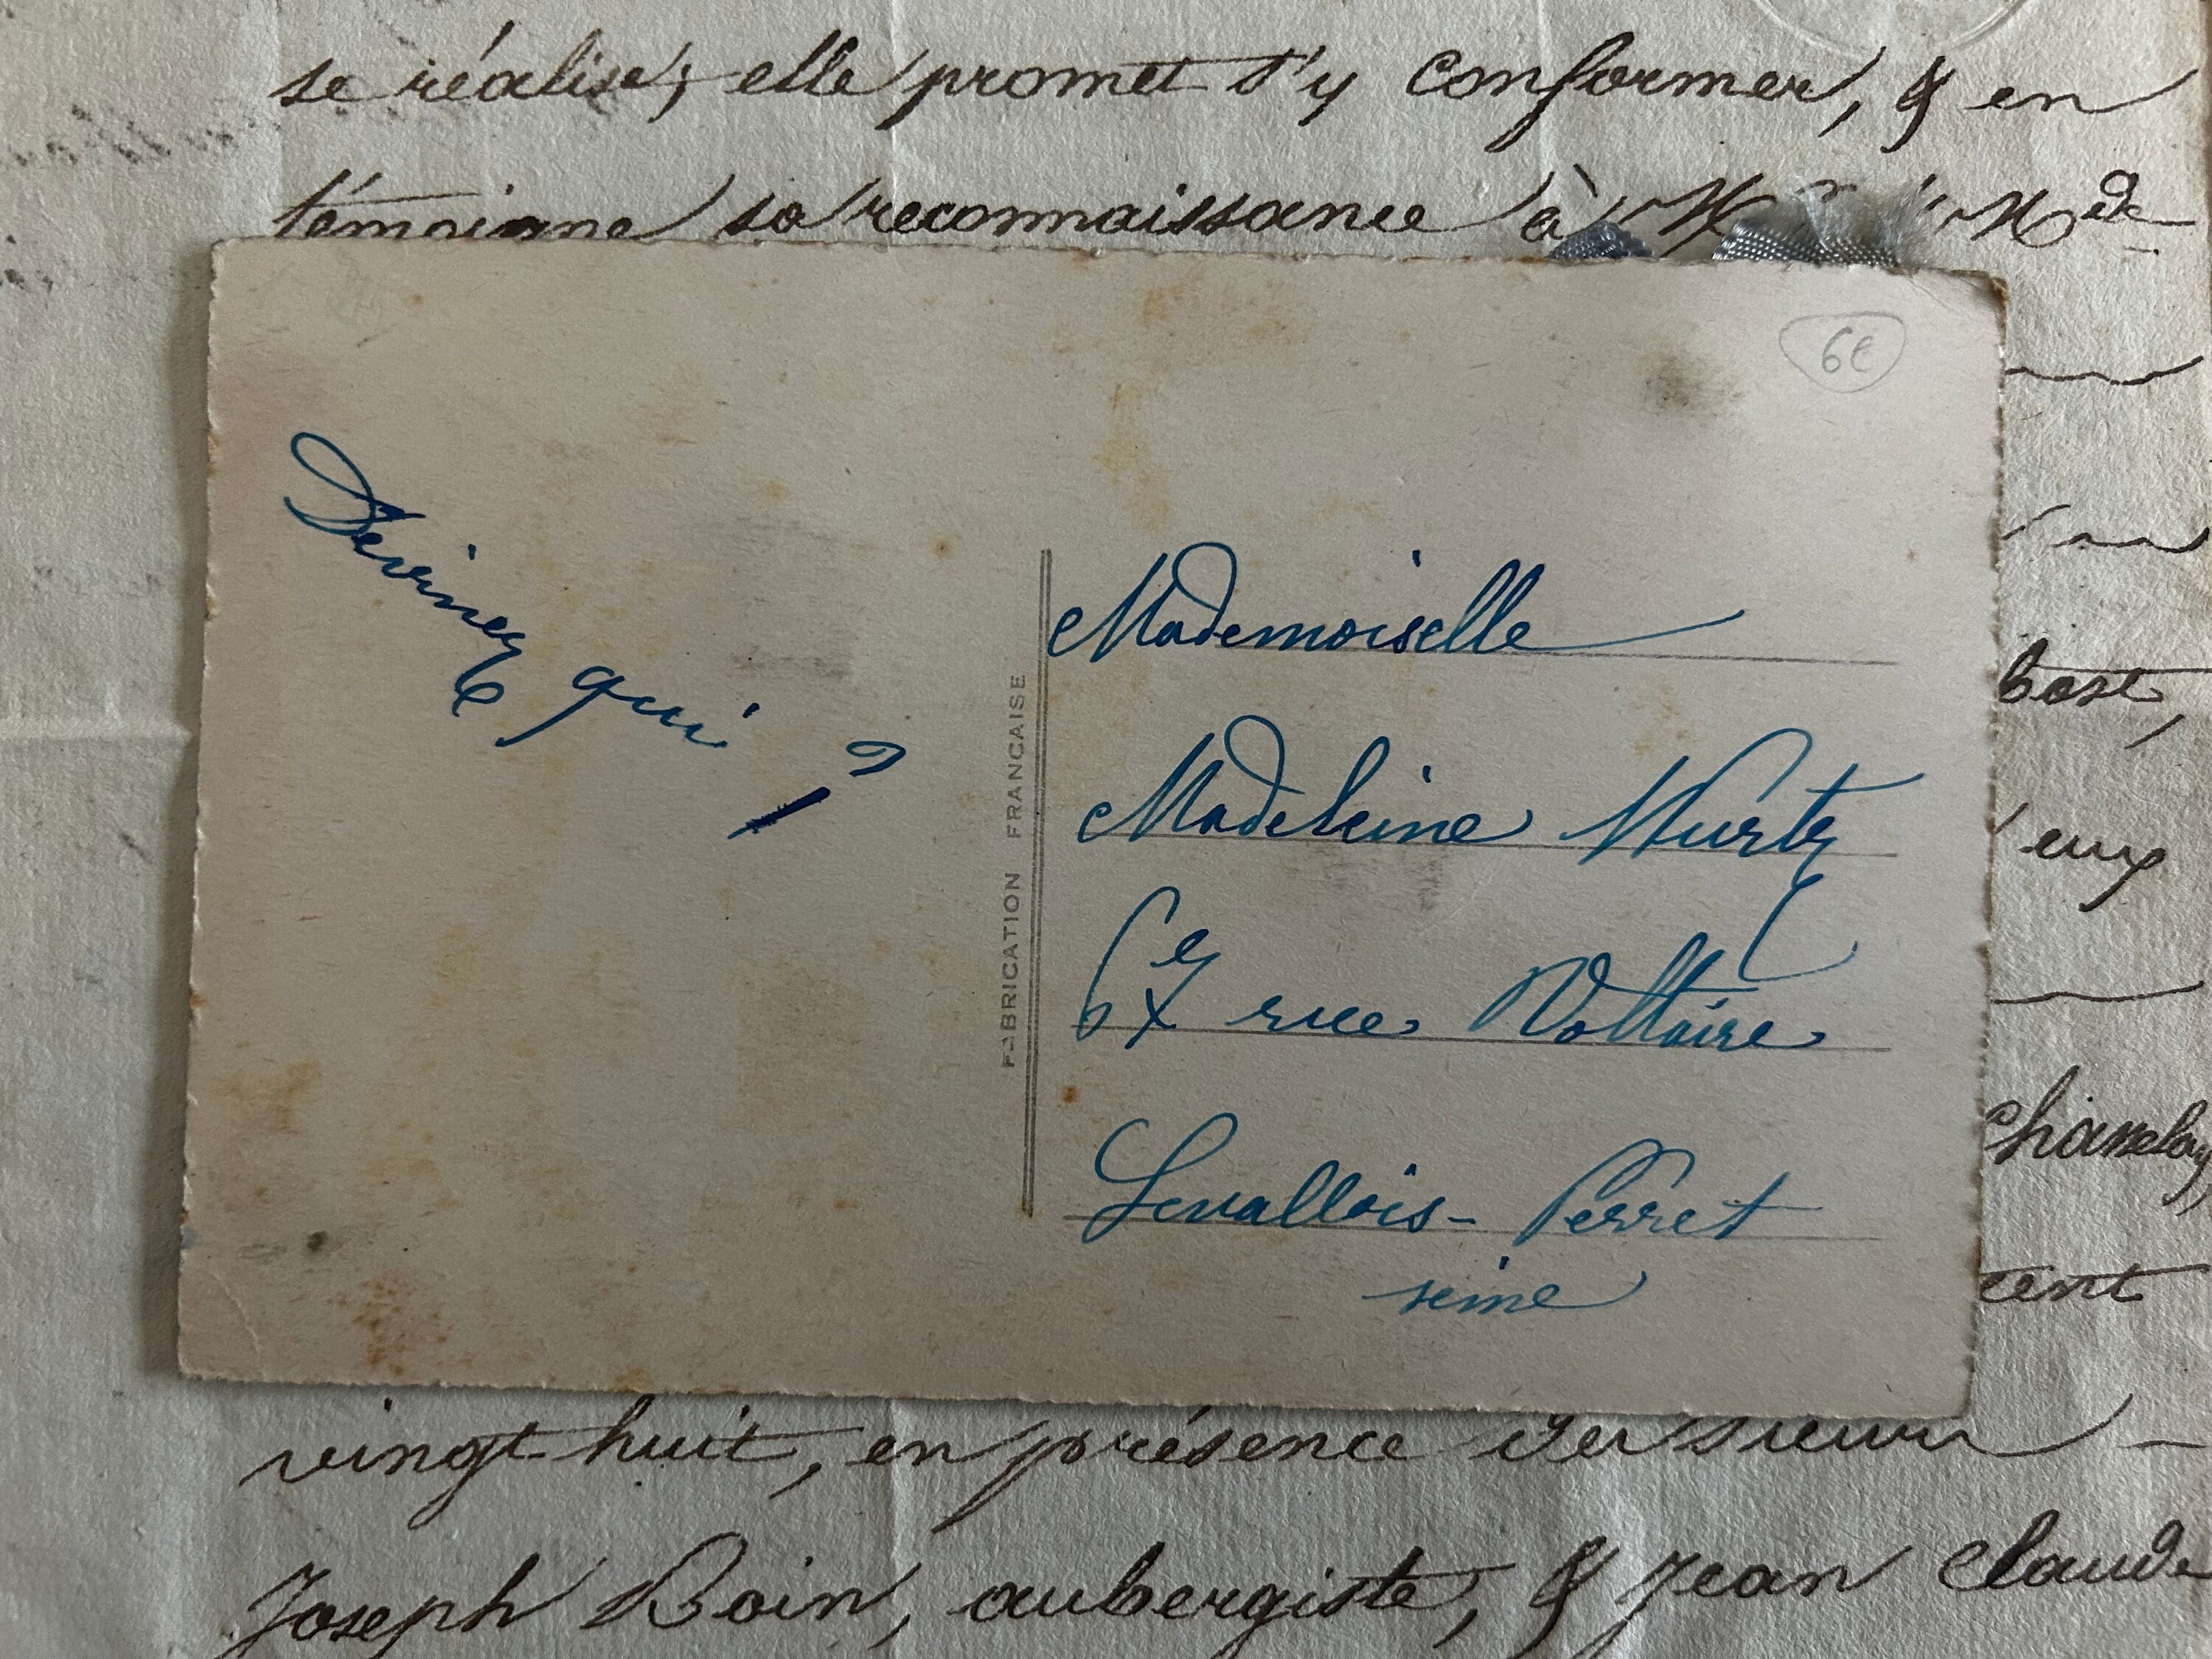 se réalise, elle promet s'y conformer, & en
témoigne sa reconnaissance à M Mde
6€
Devinez qui ?
FABRICATION FRANCAISE
Mademoiselle
Madeleine Wurtz
67 rue Voltaire
Levallois-Perret
seine
bost,
eux
cent
vingt huit, en présence des sieurs
Joseph Boin, aubergiste, & Jean Claude